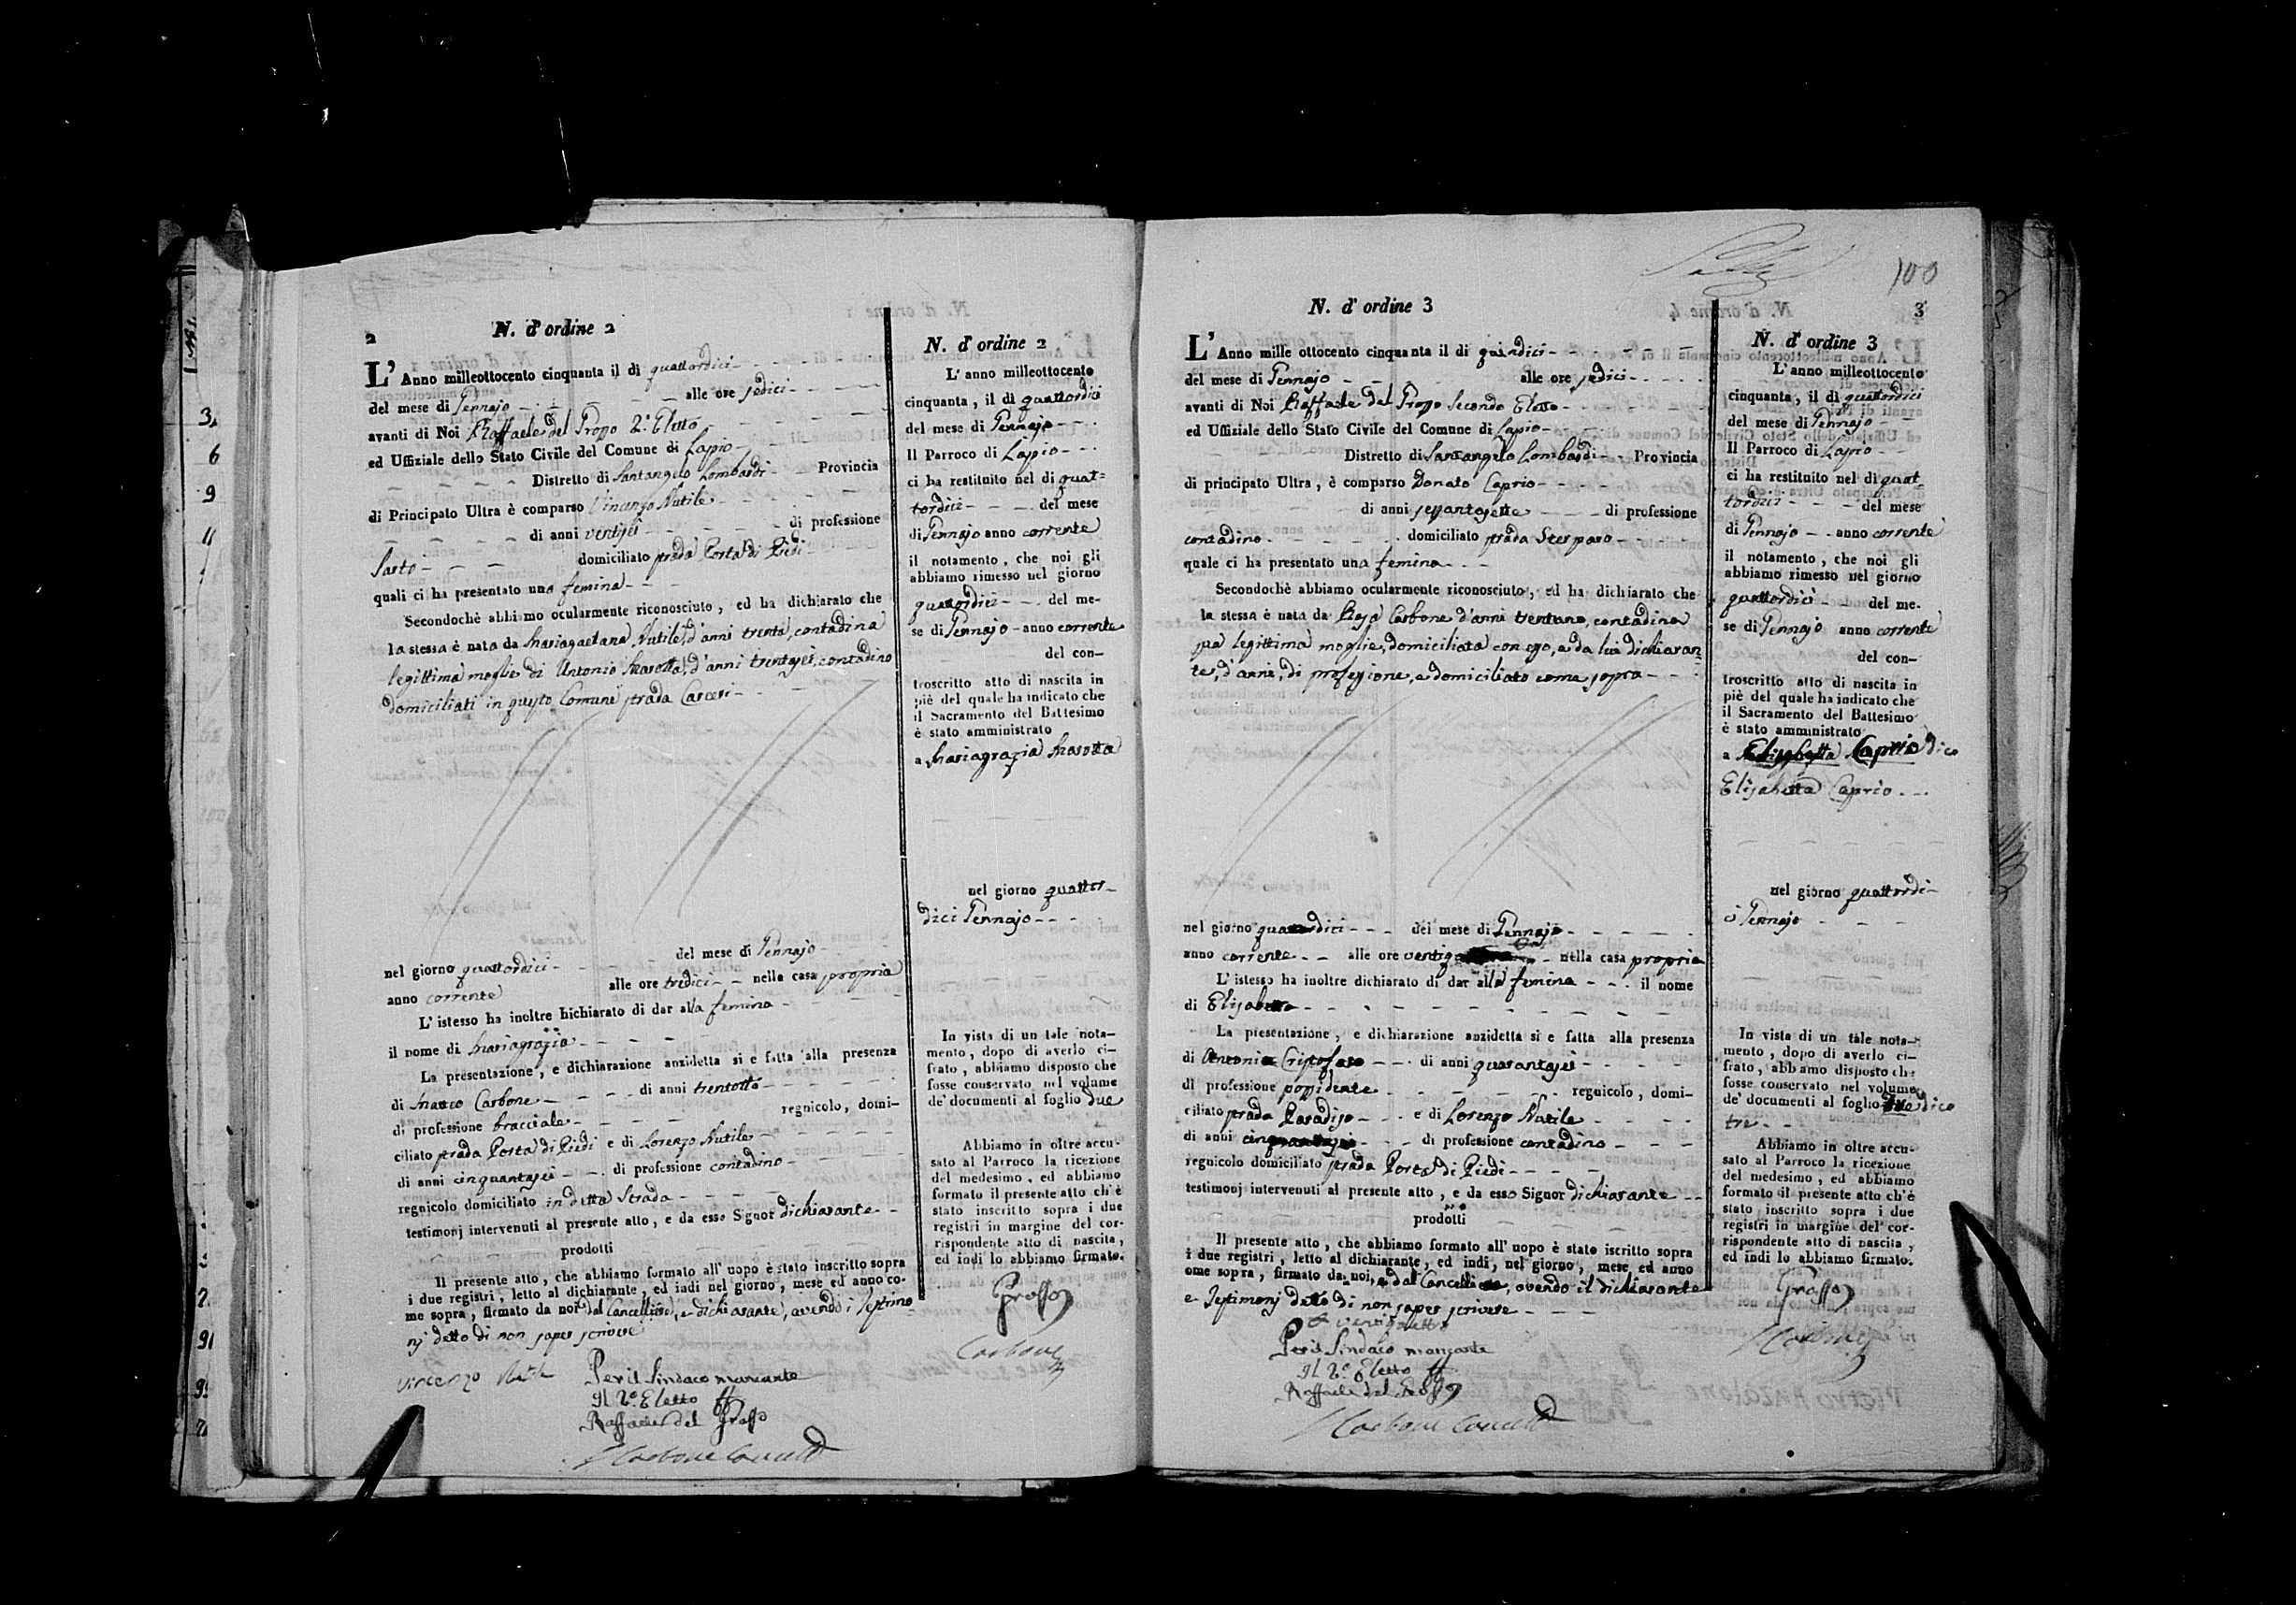 2
N. d'ordine 2
L' Anno milleottocento cinquanta il dì quattordici
del mese di Gennajo alle ore sedici
avanti di Noi Raffaele del Grosso 2.° Eletto
ed Uffiziale dello Stato Civile del Comune di Lapio
Distretto di Santangelo Lombardi Provincia
di Principato Ultra è comparso Vincenzo Nutile
di anni ventisei di professione
Sarto domiciliato strada Porta di Piedi
quali ci ha presentato una femina
Secondochè abbiamo ocularmente riconosciuto, ed ha dichiarato che
la stessa è nata da Mariagaetana Nutile, d'anni trenta, contadina
legittima moglie di Antonio Masotta, d'anni trentasei, contadino
domiciliati in questo Comune strada Carceri
nel giorno quattordici del mese di Gennajo
anno corrente alle ore tredici nella casa propria
L' istesso ha inoltre hichiarato di dar alla femina
il nome di Mariagrazia
La presentazione, e dichiarazione anzidetta si e fatta alla presenza
di Marco Carbone di anni trentotto
di professione bracciale regnicolo, domi-
ciliato strada Porta di Piedi e di Lorenzo Nutile
di anni cinquantasei di professione contadino
regnicolo domiciliato in detta Strada
testimonj intervenuti al presente atto, e da esso Signor dichiarante
prodotti
Il presente atto, che abbiamo formato all' uopo è stato inscritto sopra
i due registri, letto al dichiarante, ed indi nel giorno, mese ed anno co-
me sopra, firmato da noi dal Cancelliere, e dichiarante, avendo i testimo-
nj detto di non saper scrivere
Vincenzo Nutile
Per il Sindaco mancante
Il 2.° Eletto
Raffaele del Grosso
Carbone Cancell
N. d'ordine 2
L' anno milleottocento
cinquanta, il dì quattordici
del mese di Gennajo
Il Parroco di Lapio
ci ha restituito nel dì quat=
tordici del mese
di Gennajo anno corrente
il notamento, che noi gli
abbiamo rimesso nel giorno
quattordici del me-
se di Gennajo anno corrente
del con-
troscritto atto di nascita in
piè del quale ha indicato che
il Sacramento del Battesimo
è stato amministrato
a Mariagrazia Masotta
nel giorno quattor-
dici Gennajo
In vista di un tale nota-
mento, dopo di averlo ci-
frato, abbiamo disposto che
fosse conservato nel volume
de' documenti al foglio due
Abbiamo in oltre accu-
sato al Parroco la ricezione
del medesimo, ed abbiamo
formato il presente atto ch'è
stato inscritto sopra i due
registri in margine del cor-
rispondente atto di nascita,
ed indi lo abbiamo firmato.
Grosso
Carbone
100
3
N. d' ordine 3
L' Anno mille ottocento cinquanta il di quindici
del mese di Gennajo alle ore sedici
avanti di Noi Raffaele del Grosso Secondo Eletto
ed Uffiziale dello Stato Civile del Comune di Lapio
Distretto di Santangelo Lombardi Provincia
di principato Ultra, è comparso Donato Caprio
di anni sessantasette di professione
contadino domiciliato strada
quale ci ha presentato una femina
Secondochè abbiamo ocularmente riconosciuto, ed ha dichiarato che
la stessa è nata da Rosa Carbone d'anni trentuno, contadina
sua legittima moglie, domiciliata con esso, e da lui dichiaran-
te, d'anni, di professione, e domiciliato come sopra
nel giorno quattordici del mese di Gennajo
anno corrente alle ore nella casa propria
L' istesso ha inoltre dichiarato di dar alla femina il nome
di Elisabetta
La presentazione, e dichiarazione anzidetta si e fatta alla presenza
di Antonio Cristofaro di anni quarantasei
di professione possidente regnicolo, domi-
ciliato strada Paradiso e di Lorenzo Nutile
di anni cinquantasei di professione contadino
regnicolo domiciliato strada Porta di Piedi
testimonj intervenuti al presente atto, e da esso Signor dichiarante
prodotti
Il presente atto, che abbiamo formato all' uopo è stato iscritto sopra
i due registri, letto al dichiarante, ed indi, nel giorno, mese ed anno
ome sopra, firmato da noi, e dal Cancelliere, avendo il dichiarante
e Testimonj detto di non saper scrivere
Per il Sindaco mancante
Il 2.° Eletto
Raffaele del Grosso
Carbone Cancell
N. d' ordine 3
L' anno milleottocento
cinquanta, il dì quattordici
del mese di Gennajo
Il Parroco di Lapio
ci ha restituito nel dì quat-
tordici del mese
di Gennajo anno corrente
il notamento, che noi gli
abbiamo rimesso nel giorno
quattordici del me-
se di Gennajo anno corrente
del con-
troscritto atto di nascita in
piè del quale ha indicato che
il Sacramento del Battesimo
è stato amministrato
a Elisabetta Caprio dico
Elisabetta Caprio
nel giorno quattordi-
ci Gennajo
In vista di un tale nota-
mento, dopo di averlo ci-
frato, abbiamo disposto che
fosse conservato nel volume
de' documenti al foglio due dico
tre
Abbiamo in oltre accu-
sato al Parroco la ricezione
del medesimo, ed abbiamo
formato il presente atto ch'è
stato inscritto sopra i due
registri in margine del cor-
rispondente atto di nascita,
ed indi lo abbiamo firmato.
Grosso
Carbone